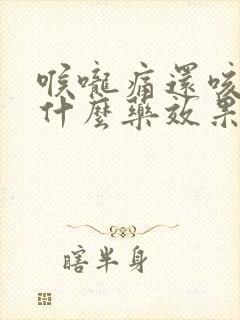 喉嚨痛還咳
什麼藥效果
瞎半身